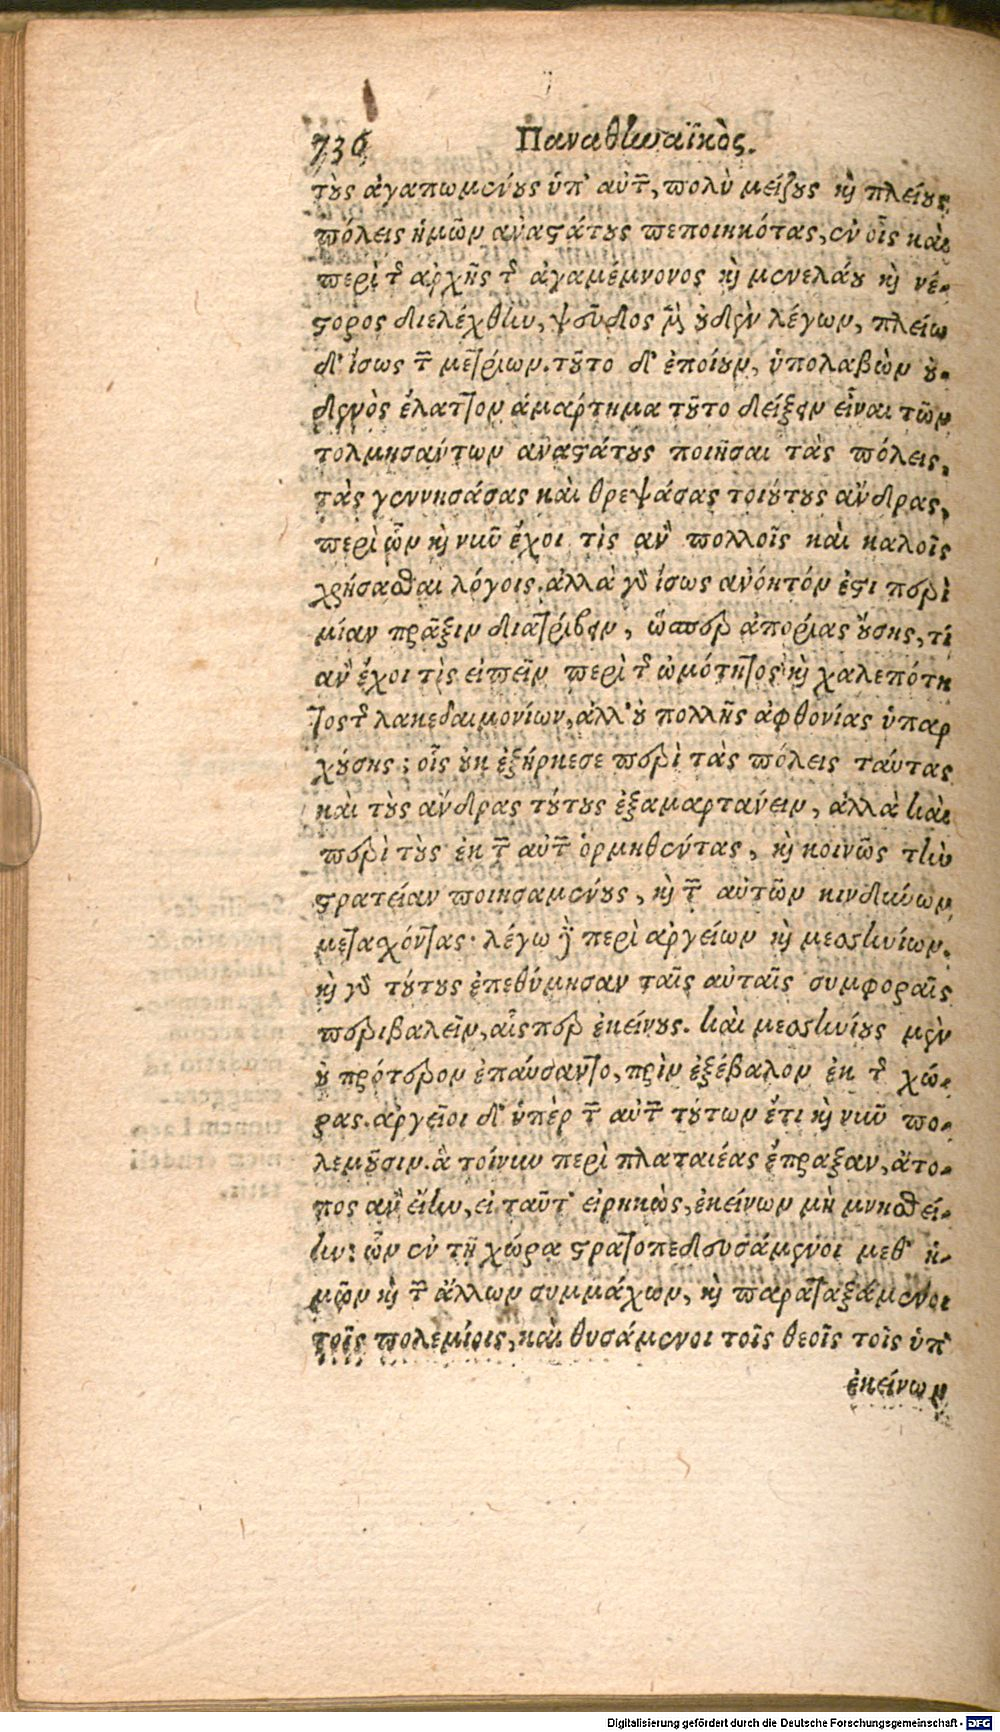 736 Παναθηναϊκὸς.
τοὺς ἀγαπωμένους ὑπ' αὐτῶν, πολὺ μείζους καὶ πλείους
πόλεις ἡμῶν ἀναστάτους πεποιηκότας, ἐν οἷς καὶ
περὶ τῆς ἀρχῆς τῆς ἀγαμέμνονος καὶ μενελάου καὶ νέ-
στορος διελέχθην, ψεῦδος μὲν οὐδὲν λέγων, πλείω
δ' ἴσως τῶν μετρίων. τοῦτο δ' ἐποίουν, ὑπολαβὼν οὐ-
δενὸς ἔλαττον ἁμάρτημα τοῦτο δείξειν εἶναι τῶν
τολμησάντων ἀναστάτους ποιῆσαι τὰς πόλεις,
τὰς γεννησάσας καὶ θρεψάσας τοιούτους ἄνδρας,
περὶ ὧν καὶ νῦν ἔχοι τὶς ἂν πολλοῖς καὶ καλοῖς
χρήσασθαι λόγοις. ἀλλὰ γὰρ ἴσως ἀνόητόν ἐστι περὶ
μίαν πρᾶξιν διατρίβειν, ὥσπερ ἀπορίας οὔσης, τί
ἂν ἔχοι τὶς εἰπεῖν περὶ τῆς ὠμότητος καὶ χαλεπότη
τος τῆς λακεδαιμονίων, ἀλλ' οὐ πολλῆς ἀφθονίας ὑπαρ
χούσης; οἷς οὐκ ἐξήρκεσε περὶ τὰς πόλεις ταύτας
καὶ τοὺς ἄνδρας τούτους ἐξαμαρτάνειν, ἀλλὰ καὶ
περὶ τοὺς ἐκ τῶν αὐτῶν ὁρμηθέντας, καὶ κοινῶς τὴν
στρατείαν ποιησαμένους, καὶ τῶν αὐτῶν κινδύνων
μετασχόντας· λέγω δὲ περὶ ἀργείων καὶ μεσσηνίων.
καὶ γὰρ τούτους ἐπεθύμησαν ταῖς αὐταῖς συμφοραῖς
περιβαλεῖν, αἷσπερ ἐκείνους. καὶ μεσσηνίους μὲν
οὐ πρότερον ἐπαύσαντο, πρὶν ἐξέβαλον ἐκ τῆς χώ-
ρας. ἀργεῖοι δ' ὑπὲρ τῶν αὐτῶν τούτων ἔτι καὶ νῦν πο-
λεμοῦσιν. ἃ τοίνυν περὶ πλαταιέας ἔπραξαν, ἄτο-
πος ἂν εἴην, εἰ ταῦτ' εἰρηκὼς, ἐκείνων μὴ μνησθεί-
ην: ὧν ἐν τῇ χώρᾳ στρατοπεδευσάμενοι μεθ' ἡ-
μῶν καὶ τῶν ἄλλων συμμάχων, καὶ παραταξάμενοι
τοῖς πολεμίοις, καὶ θυσάμενοι τοῖς θεοῖς τοῖς ὑπ'
ἐκείνων
Digitalisierung gefördert durch die Deutsche Forschungsgemeinschaft - DFG